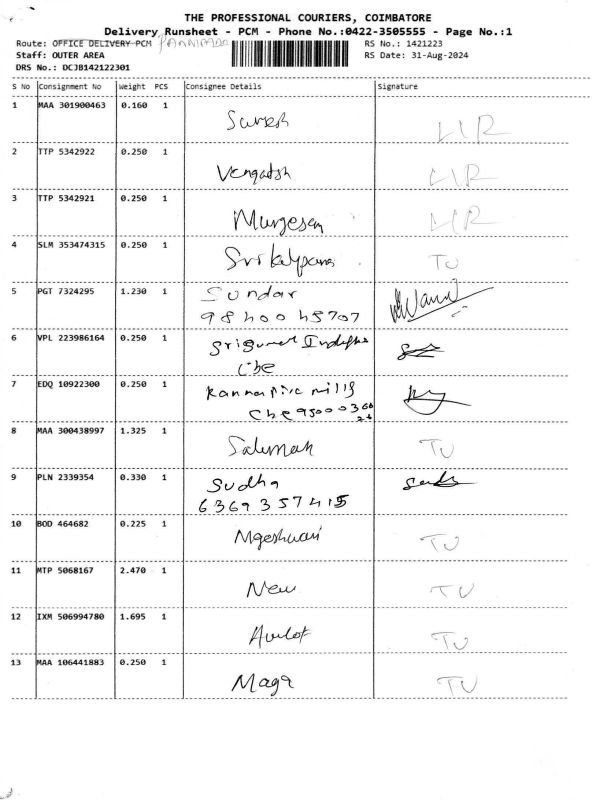 THE PROFESSIONAL COURIERS, COIMBATORE
Delivery Runsheet - PCM - Phone No.:0422-3505555 - Page No.:1
Route: OFFICE DELIVERY-PCM
RS No.: 1421223
Staff: OUTER AREA
RS Date: 31-Aug-2024
DRS No.: DCJB142122301
S No Consignment No Weight PCS Consignee Details Signature
1 MAA 301900463 0.160 1 Suresh LIR
2 TTP 5342922 0.250 1 Vengatsh LIR
3 TTP 5342921 0.250 1 Murgesan LIR
4 SLM 353474315 0.250 1 Sri kalpana TU
5 PGT 7324295 1.230 1 Sundar
98400 45707
6 VPL 223986164 0.250 1
Cbe
7 EDQ 10922300 0.250 1 mills
Cbe
8 MAA 300438997 1.325 1 TU
9 PLN 2339354 0.330 1 Sudha
6369357415
10 BOD 464682 0.225 1 Mgeshwari TU
11 MTP 5068167 2.470 1 New TU
12 IXM 506994780 1.695 1 TU
13 MAA 106441883 0.250 1 Maga TU